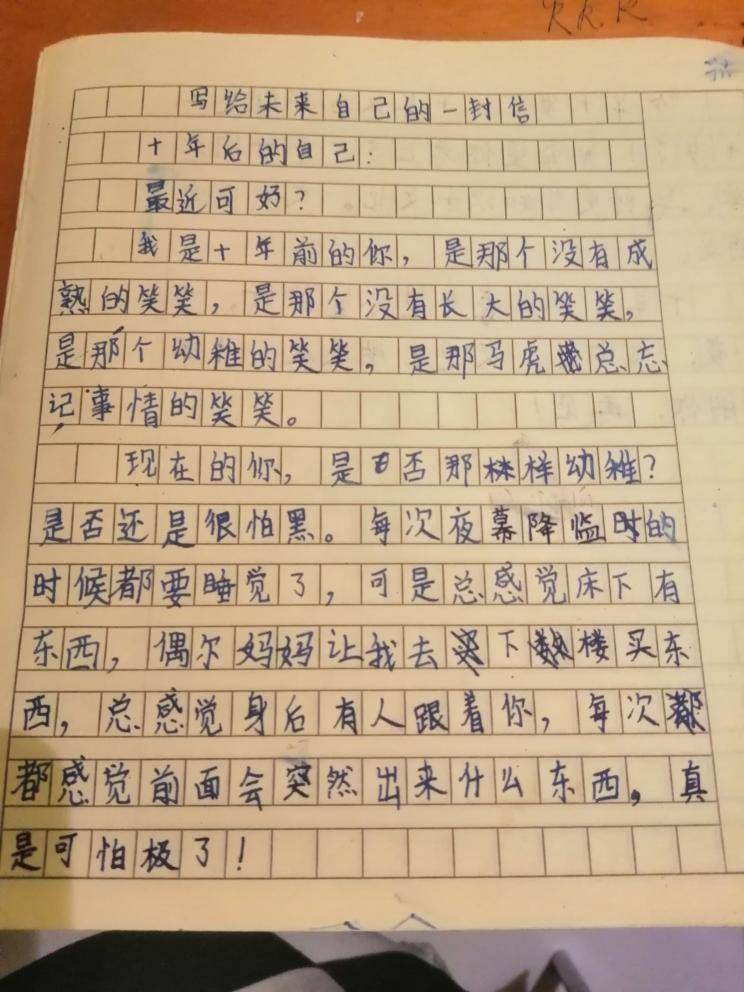 写给未来自己的一封信
十年后的自己:
最近可好?
我是十年前的你,是那个没有成
熟的笑笑,是那个没有长大的笑笑,
是那个幼稚的笑笑,是那马虎总忘
记事情的笑笑。
现在的你,是否那样幼稚?
是否还是很怕黑。每次夜幕降临时的
时候都要睡觉了,可是总感觉床下有
东西,偶尔妈妈让我去下楼买东
西,总感觉身后有人跟着你,每次
都感觉前面会突然出来什么东西。真
是可怕极了!